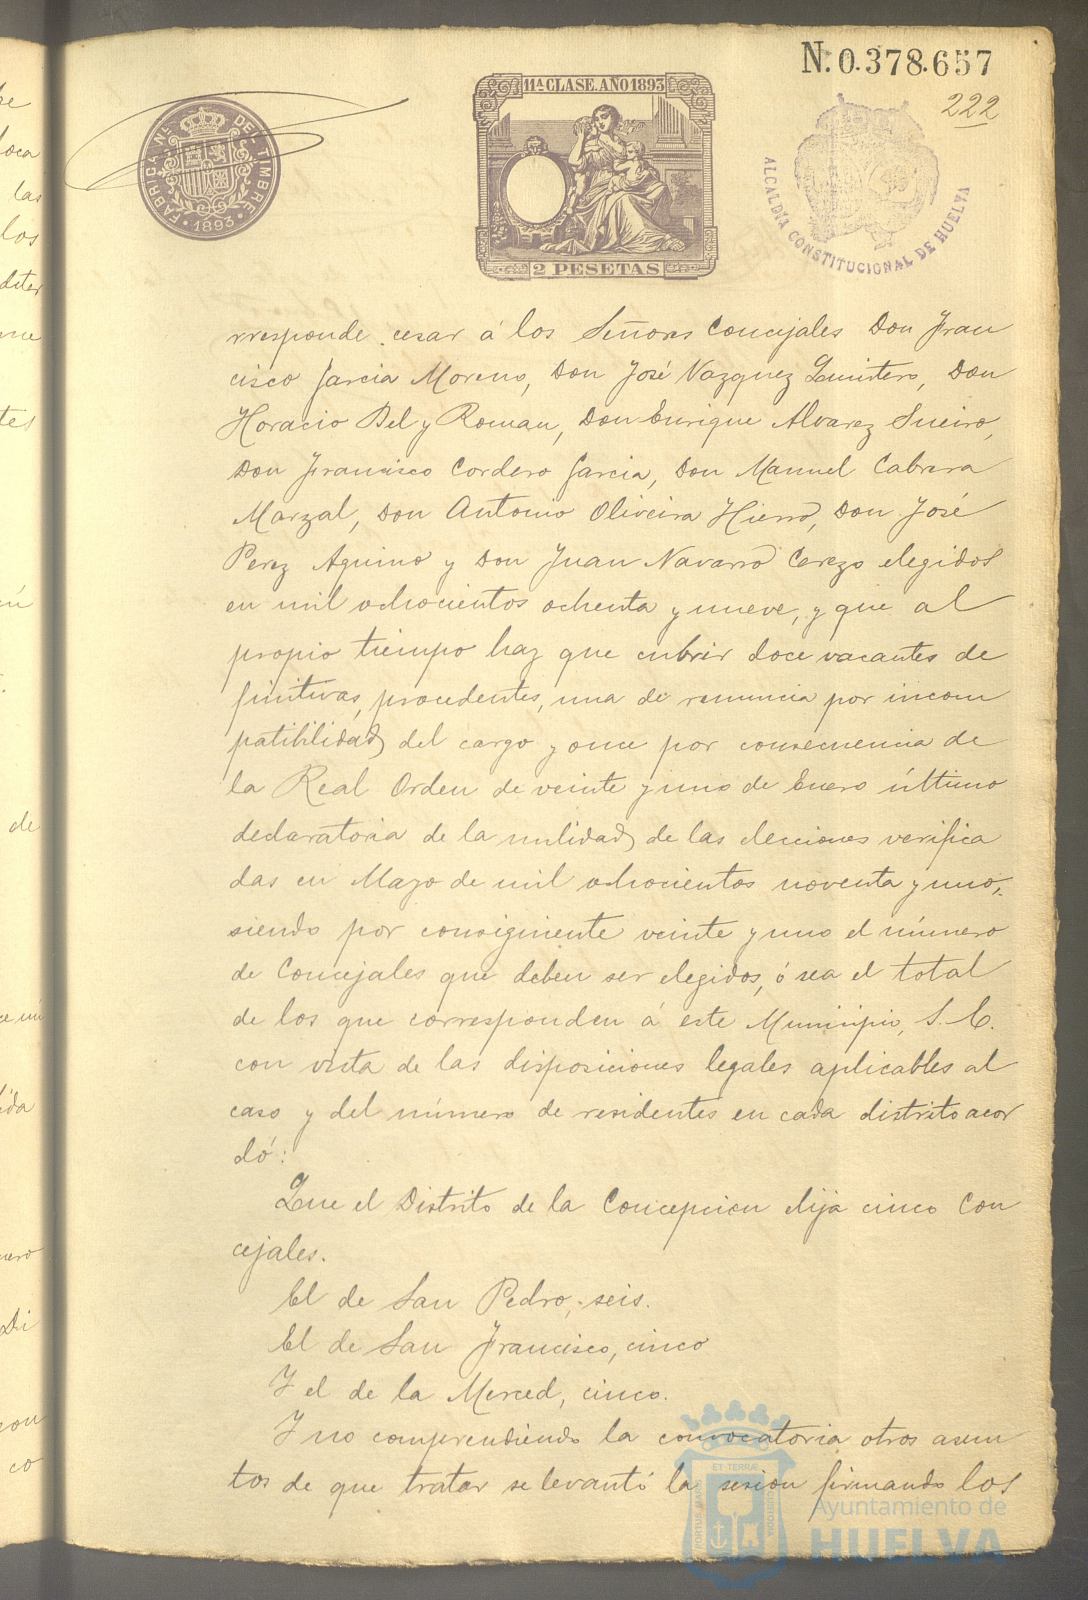 N. 0.378.657
222
11ª CLASE. AÑO 1893
FABRICA NL. DEL TIMBRE
1893
2 PESETAS
ALCALDÍA CONSTITUCIONAL DE HUELVA
rresponde cesar á los Señores Concejales Don Fran
cisco Garcia Moreno, Don José Vazquez Quintero, Don
Horacio Bel y Roman, Don Enrique Alvarez Sueiro,
Don Francisco Cordero Garcia, Don Manuel Cabrera
Marzal, Don Antonio Oliveira Hierro, Don José
Perez Aquino y Don Juan Navarro Cerezo elegidos
en mil ochocientos ochenta y nueve, y que al
propio tiempo hay que cubrir doce vacantes de
finitivas, procedentes, una de renuncia por incom
patibilidad del cargo y once por consecuencia de
la Real Orden de veinte y uno de Enero último
declaratoria de la nulidad de las elecciones verifica
das en Mayo de mil ochocientos noventa y uno,
siendo por consiguiente veinte y uno el número
de Concejales que deben ser elegidos, ó sea el total
de los que corresponden á este Municipio, S. E.
con vista de las disposiciones legales aplicables al
caso y del número de residentes en cada distrito acor
dó:
Que el Distrito de la Concepcion elija cinco Con
cejales.
El de San Pedro, seis.
El de San Francisco, cinco
Y el de la Merced, cinco.
Y no comprendiendo la convocatoria otros asun
tos de que tratar se levantó la sesion firmando los
PORTUS MARIS ET TERRÆ CUSTODIA
Ayuntamiento de
HUELVA